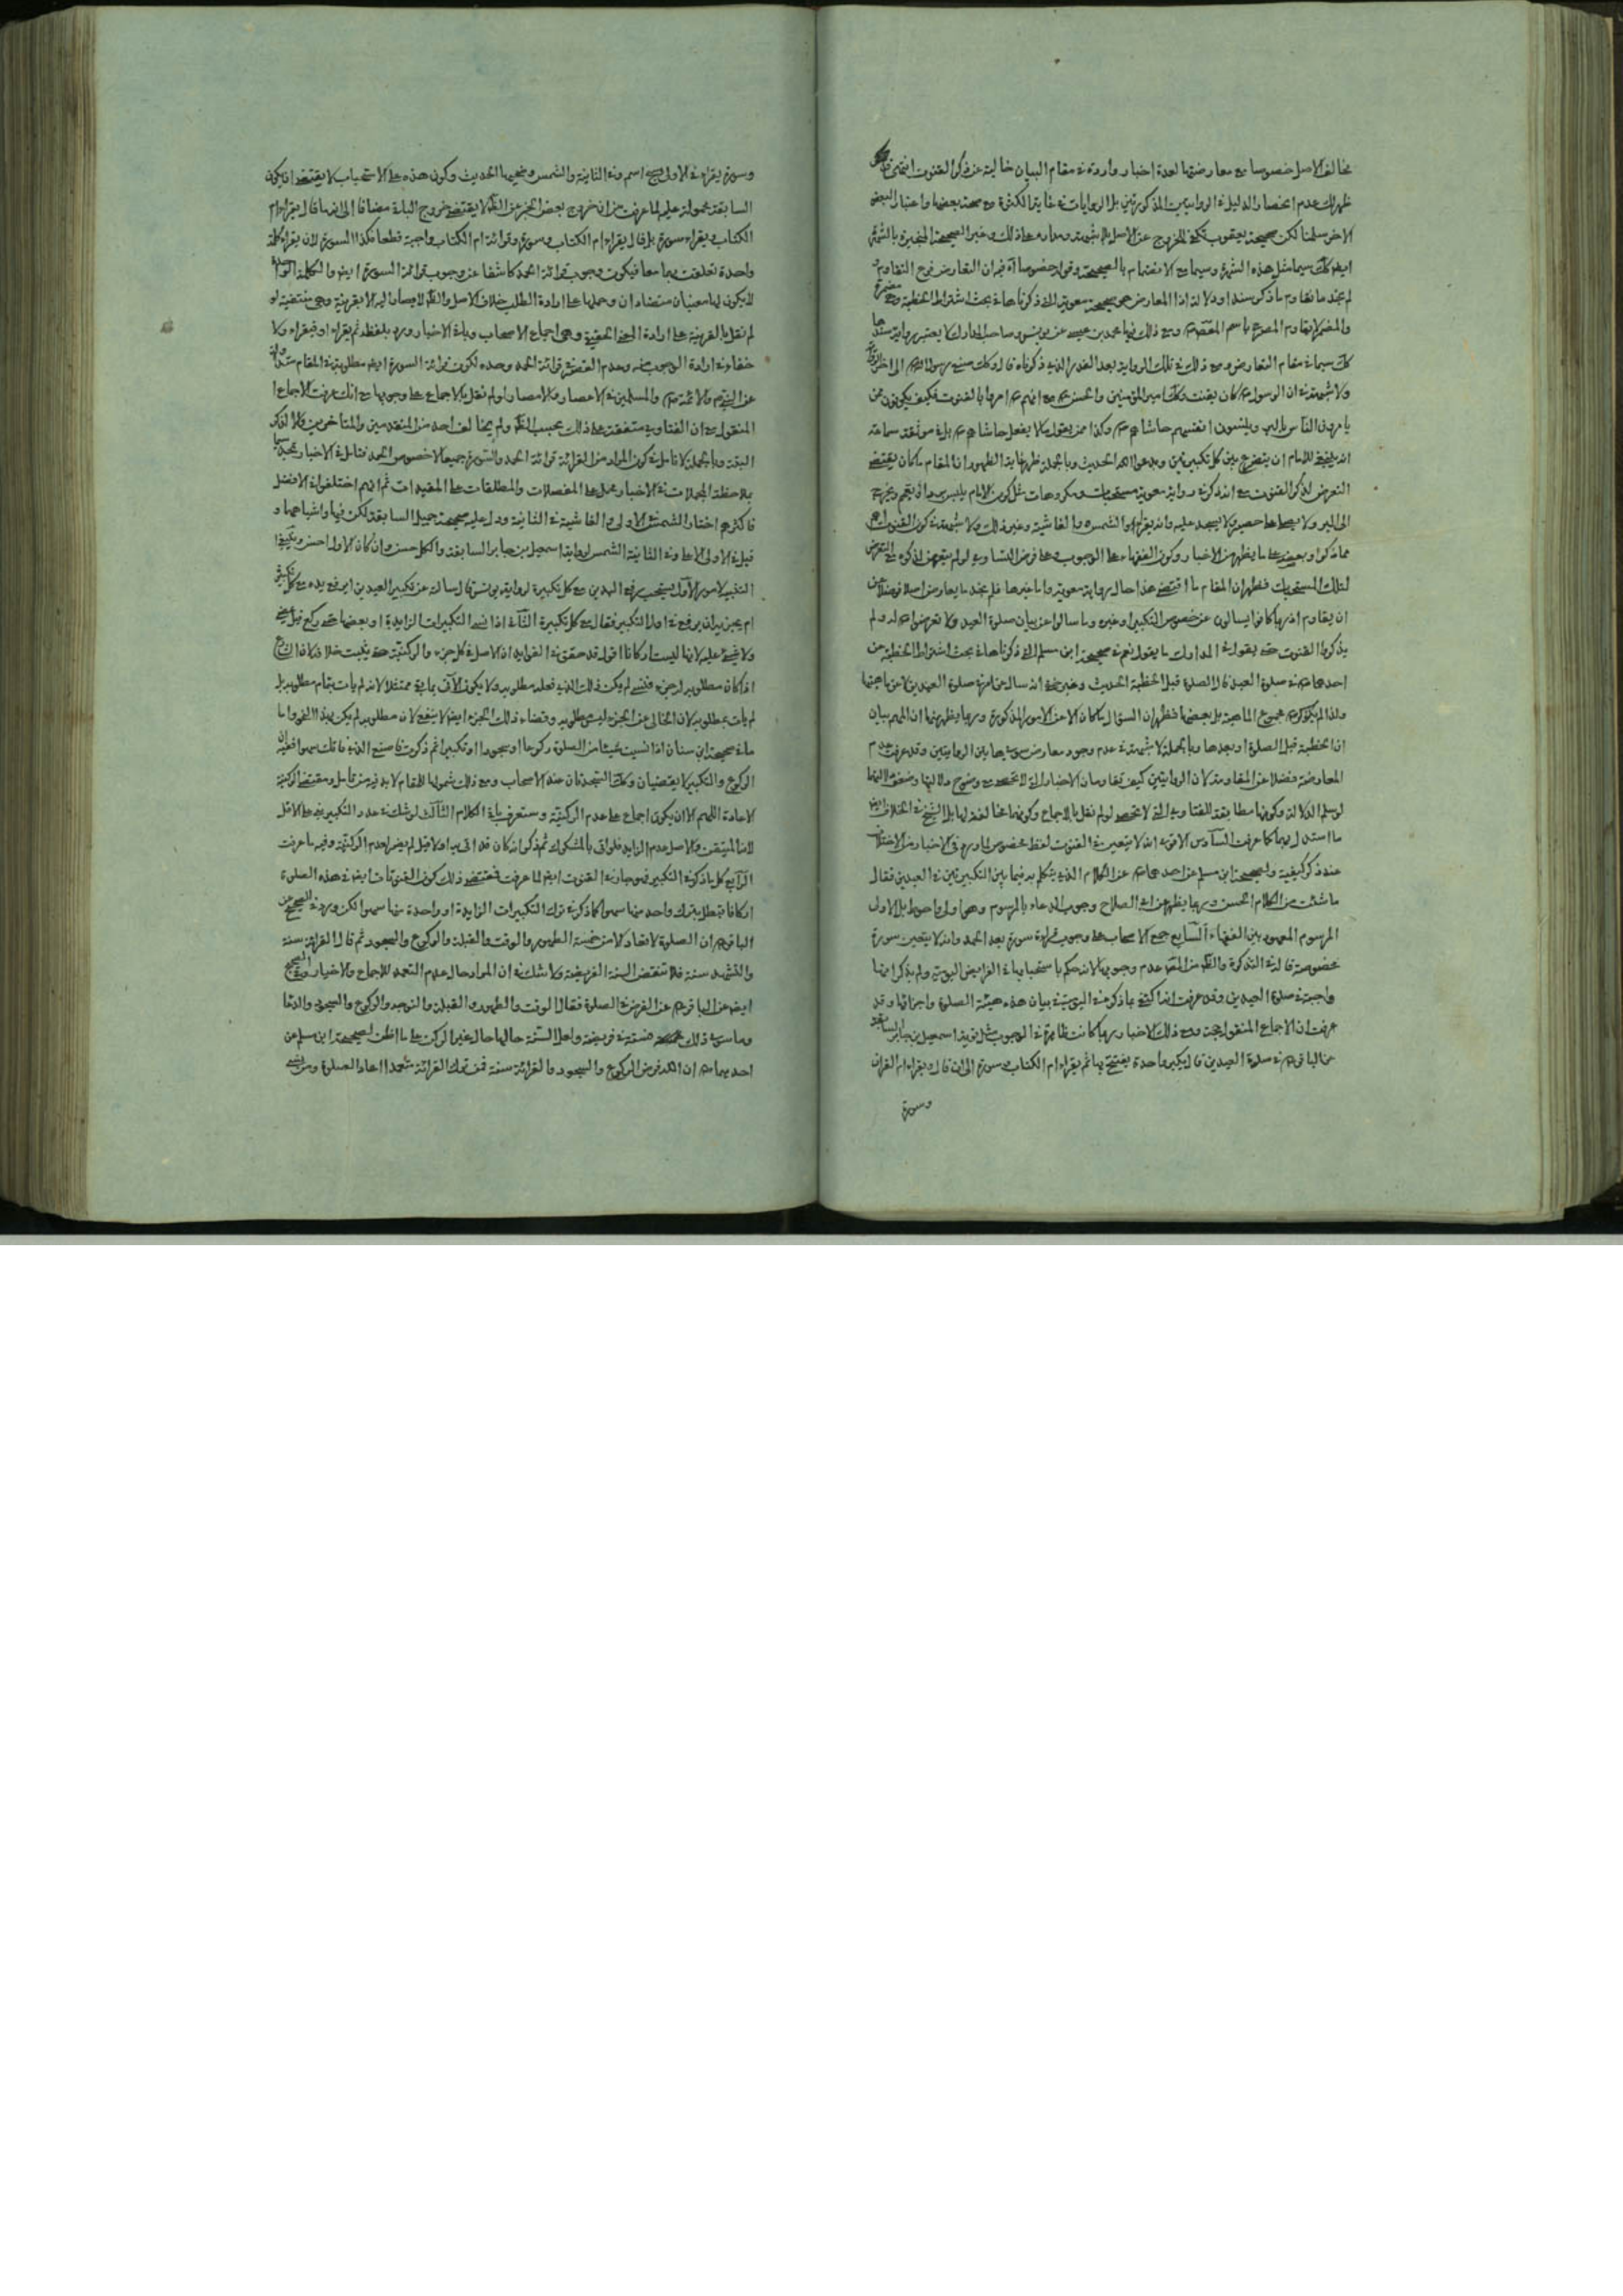 مخالف الاصل خصوصا مع معارضتها لعدة اخبار واردة في مقام البيان خالية عن ذكر القنوت انتهى
ظهر لك عدم انحصار الدليل في الروايتين المذكورتين بل الروايات في غاية الكثرة مع صحة بعضها واعتبار البعض
الاخر سلمنا لكن صحيحة يعقوب تكفي للخروج عن الاصل بلا شبهة ومداره على ذلك وغير الصحيحة المنجبرة بالشهرة
ايض كك سيما مثل هذه الشهرة وسيما مع الانضمام بالصحيحة وقوله خصوصا آه فيه ان التعارض فرع التقاوم و
لم نجد ما يقاوم ما ذكر سندا ودلالة اذا المعارض هي صحيحة معوية التي ذكرناها في بحث اشتراط الخطبة
والمضمر لا يقاوم المصرح باسم المعصوم ومع ذلك فيها محمد بن عيسى عن يونس وصاحب المدارك لا يعتبر رواية
كك سيما في مقام التعارض ومع ذلك في تلك الرواية بعد القدر الذي ذكرناه قال وكك صنع رسول الله الى اخر
ولا شبهة في ان الرسول كان يقنت وكك امير المؤمنين والحسن مع انهم امروا بالقنوت فكيف يكونون ممن
يامرون الناس بالبر وينسون انفسهم حاشاهم وكذا ممن يقول ما لا يفعل حاشاهم بل في موثقة سماعة
انه ينبغي للامام ان يتضرع بين كل تكبيرتين ويدعو الله الحديث وبالجملة ظهر غاية الظهور ان المقام ما كان يقتضي
التعرض لذكر القنوت مع انه ذكر في رواية معوية مستحبات ومكروهات مثل كون الامام يلبس بردا ويعتم ويخرج
الى البر ولا يصلي على حصير ولا يسجد عليه وانه يقراء والشمس والغاشية وغير ذلك ولا شبهة في كون القنوت اهم
مما ذكر او بعض على ما يظهر من الاخبار وكون الفقهاء على الوجوب وعلى فرض التساوي لو لم يتعرض لذكره مع التعرض
لتلك المستحبات فظهر ان المقام ما اقتضى هذا حال رواية معوية واما غيرها فلم نجد ما يعارض اصلا فضلا عن
ان يقاوم اذ ربما كانوا يسالون عن خصوص التكبير او غيره وما سالوا عن بيان صلوة العيد ولا تعرضوا له ولم
يذكروا القنوت حتى يقول في المدارك ما يقول نعم في صحيحة ابن مسلم التي ذكرناها في بحث اشتراط الخطبة عن
احدهما في صلوة العيد قال الصلوة قبل الخطبة الحديث وغير خفي انه سال عن امر في صلوة العيدين لا عن ماهيتها
ولذا لم يذكر مجموع الماهية بل بعضها فظهر ان السؤال ما كان الا عن الامور المذكورة وربما يظهر منها ان المهم بيان
ان الخطبة قبل الصلوة او بعدها وبالجملة لا شبهة في عدم وجود معارض سويها بين الروايتين وقد عرفت عدم
المعارضة فضلا عن المقاومة لان الروايتين كيف تقاومان الاخبار التي لا تحصى مع وضوح دلالتها وضعف دلالتهما
لو سلم الدلالة وكونها مطابقة للفتاوي التي لا تحصى لو لم نقل بالاجماع وكونهما مخالفة لها بل الشيخ في الخلاف ايض
ما استدل بهما كما عرفت السادس الاقوى انه لا يتعين في القنوت لفظ مخصوص لما ورد في الاخبار من الاختلاف
عند ذكر كيفية ولصحيحة ابن مسلم عن احدهما عن الكلام الذي يتكلم به فيما بين التكبيرتين في العيدين فقال
ما شئت من الكلام الحسن وربما يظهر عن ابي الصلاح وجوب الدعاء بالمرسوم وهو اولى واحوط بل الاولى
المرسوم المعهود بين الفقهاء السابع جمع الاصحاب على وجوب قراءة سورة بعد الحمد وانه لا يتعين سورة
مخصوصة قاله في التذكرة والظ من المقنعة عدم وجوبها لانه حكم باستحبابها في الفرايض اليومية ولم يذكر انها
واجبة في صلوة العيدين وقد عرفت انه اكتفى بما ذكر منه اليومية في بيان هذه هيئة الصلوة واجزائها وقد
عرفت ان الاجماع المنقول حجة ومع ذلك الاخبار ربما كانت ظاهرة في الوجوب مثل رواية اسمعيل بن جابر السابقة
عن الباقر في صلوة العيدين قال يكبر واحدة يفتتح بها ثم يقراء ام الكتاب وسورة الى ان قال ويقراء ام القران
وسورة
وسورة يقراء في الاولى سبح اسم وفي الثانية والشمس وضحيها الحديث وكون هذه على الاستحباب لا يقتضي ان يكون
السابقة محمولة عليه لما عرفت من ان خروج بعض الخبر عن الظ لا يقتضي خروج الباقي مضافا الى انه ما قال يقراء ام
الكتاب ويقراء سورة بل قال يقراء ام الكتاب وسورة وقرائة ام الكتاب واجبة قطعا فكذا السورة لان يقراء كلمة
واحدة تعلقت بهما معا فيكون وجوب قرائة الحمد كاشفا عن وجوب قرائة السورة ايض والكلمة الواحدة
لا يكون لها معنيان متضادان وحملها على ارادة الطلب خلاف الاصل والظ لا يصار اليه الا بقرينة وهي منتفية لو
لم نقل بالقرينة على ارادة المعنى الحقيقي وهي اجماع الاصحاب وباقي الاخبار ورد بلفظ ثم يقراء او فيقراء ولا
خفاء في ارادة الوجوب منه وعدم القصر في قرائة الحمد وحده لكون قرائة السورة ايض مطلوبة في المقام
عن النبي والائمة والمسلمين في الاعصار والامصار لو لم نقل بالاجماع على وجوبها مع انك عرفت الاجماع
المنقول مع ان الفتاوي متفقة على ذلك بحسب الظ ولم يخالف احد من المتقدمين والمتاخرين
البتة وبالجملة لا تامل في كون المراد من القرائة قرائة الحمد والسورة جميعا لا خصوص الحمد فتامل في الاخبار تجد
بملاحظة المجملات في الاخبار يحمل على المفصلات والمطلقات على المقيدات ثم انهم اختلفوا في الافضل
فاكثرهم اختار الشمس في الاولى والغاشية في الثانية ودل عليه صحيحة جميل السابقة لكن فيها واشباههما و
قيل في الاولى الاعلى وفي الثانية الشمس لرواية اسمعيل بن جابر السابقة والكل حسن وان كان الاول احسن
التنبيه لامور الاول يستحب رفع اليدين مع كل تكبيرة لرواية يونس قال سالته عن تكبير العيدين ايرفع يده مع كل تكبيرة
ام يجزيه ان يرفع في اول التكبير فقال مع كل تكبيرة الثاني اذا نسي التكبيرات الزايدة او بعضها حتى ركع
ولا شيء عليه لانها ليست اركانا اقول قد حقق في الفوايد ان الاصل في كل جزء والركنية حتى يثبت خلافه
اذا كان مطلوبه الجزء فنسي لم يكن ذلك الذي فعله مطلوبه ولا يكون الآتي بما بقي ممتثلا لانه لم يات بتمام مطلوبه بل
لم يات بمطلوبه لان الخالي عن الجزء ليس مطلوبه وقضاء ذلك الجزء ايض لا ينفع لان مطلوبه لم يكن بهذا النحو واما
ما في صحيحة ابن سنان اذا نسيت شيئا من الصلوة ركوعا او سجودا او تكبيرا ثم ذكرت فاصنع الذي فاتك سهوا
الركوع والتكبير لا يقضيان وكك السجدتان عند الاصحاب ومع ذلك شمولها للمقام لا بد فيه من تامل ومقتضى الركنية
الاعادة اللهم الا ان يكون اجماع على عدم الركنية وستعرف باقي الكلام الثالث لو شك في عدد التكبير بنى على الاقل
لانه المتيقن والاصل عدم الزايد فلو اتى بالمشكوك ثم ذكر انه كان قد اتى به اولا قيل لم يضر لعدم الركنية وفيه ما عرفت
الرابع كل ما ذكر في التكبير فهو جار في القنوت ايض لما عرفت فمقتضى ذلك كون القنوتات ايض في هذه الصلوة
اركانا فتبطل بترك واحد منها سهوا كما ذكر في ترك التكبيرات الزايدة او واحدة منها سهوا لكن ورد في الصحيح عن
الباقر ان الصلوة لا تعاد الا من خمسة الطهور والوقت والقبلة والركوع والسجود ثم قال القرائة سنة
والتشهد سنة فلا تنقض السنة الفريضة ولا شك في ان المراد حال عدم التعمد للاجماع والاخبار وفي الصحيح
ايض عن الباقر عن الفرض في الصلوة فقال الوقت والطهور والقبلة والتوجه والركوع والسجود والدعا
وما سوى ذلك سنة في فريضة ولعل السنة حالها حال غير الركن على ما اظن لصحيحة ابن مسلم عن
احدهما ان الله فرض الركوع والسجود والقرائة سنة فمن ترك القرائة متعمدا اعاد الصلوة ومن نسي